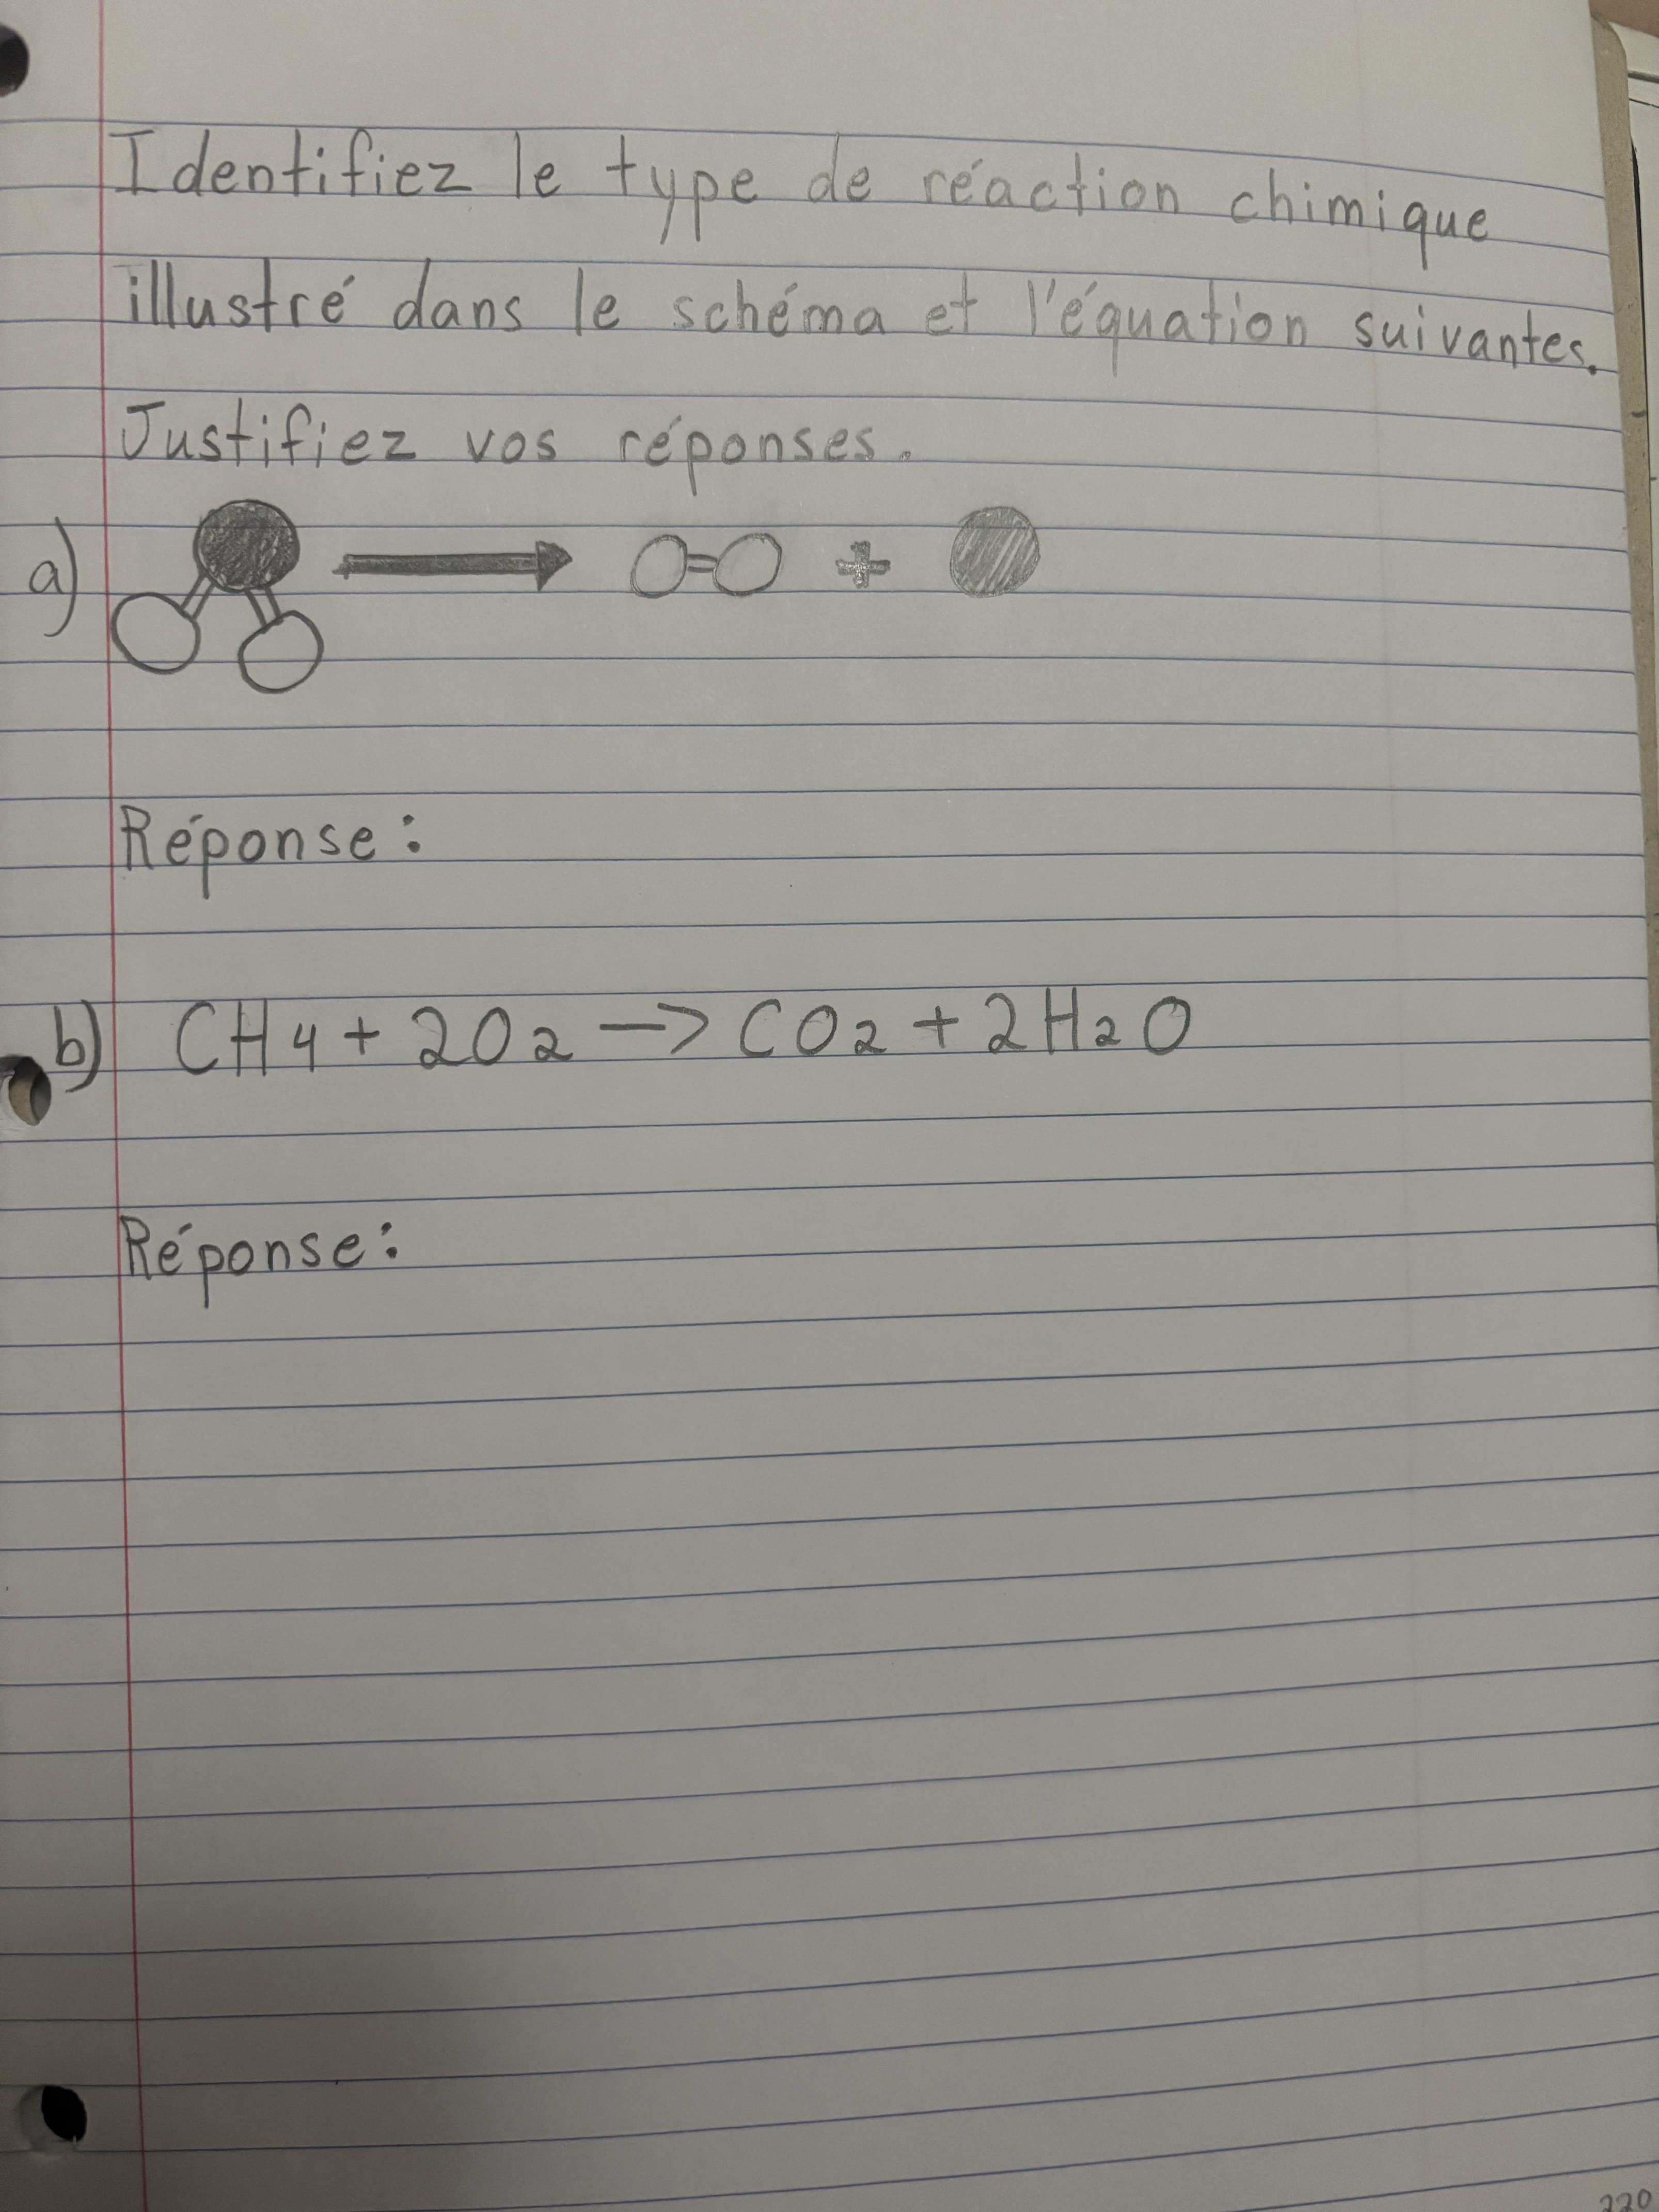 Identifiez le type de réaction chimique
illustré dans le schéma et l'équation suivantes.
Justifiez vos réponses.
a)
+
Réponse:
b) CH4 + 2O2 -> CO2 + 2H2O
Réponse:
220